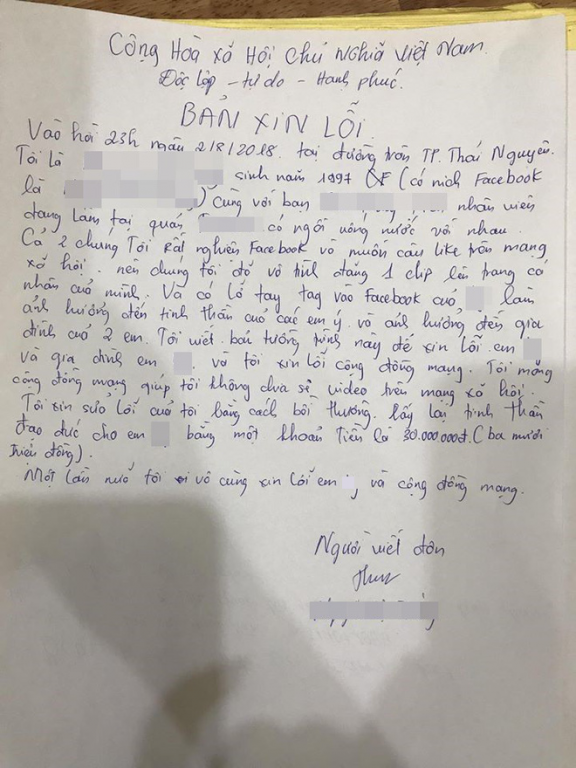 Cộng Hoà xã Hội Chủ Nghĩa Việt Nam.
Độc lập - tự do - Hạnh phúc.
BẢN XIN LỖI
Vào hồi 23h ngày 2/8/2018. tại đường tròn TP. Thái Nguyên.
Tôi là sinh năm 1997 (có nick Facebook
là ) cùng với bạn nhân viên
đang làm tại quán có ngồi uống nước với nhau.
Cả 2 chúng Tôi rất nghiện Facebook và muốn câu like trên mạng
xã hội. nên chúng tôi đã vô tình đăng 1 clip lên trang cá
nhân của mình. Và có lỡ tay tag vào Facebook của làm
ảnh hưởng đến tinh thần của các em ý. và ảnh hưởng đến gia
đình của 2 em. Tôi viết bản tường trình này để xin lỗi em
và gia đình em . và tôi xin lỗi cộng đồng mạng. Tôi mong
cộng đồng mạng giúp tôi không chia sẻ video trên mạng xã hội.
Tôi xin sửa lỗi của tôi bằng cách bồi thường. lấy lại tinh thần
đạo đức cho em bằng một khoản Tiền là 30.000.000đ. (ba mươi
triệu đồng).
Một lần nữa tôi vô cùng xin lỗi em và cộng đồng mạng.
Người viết đơn